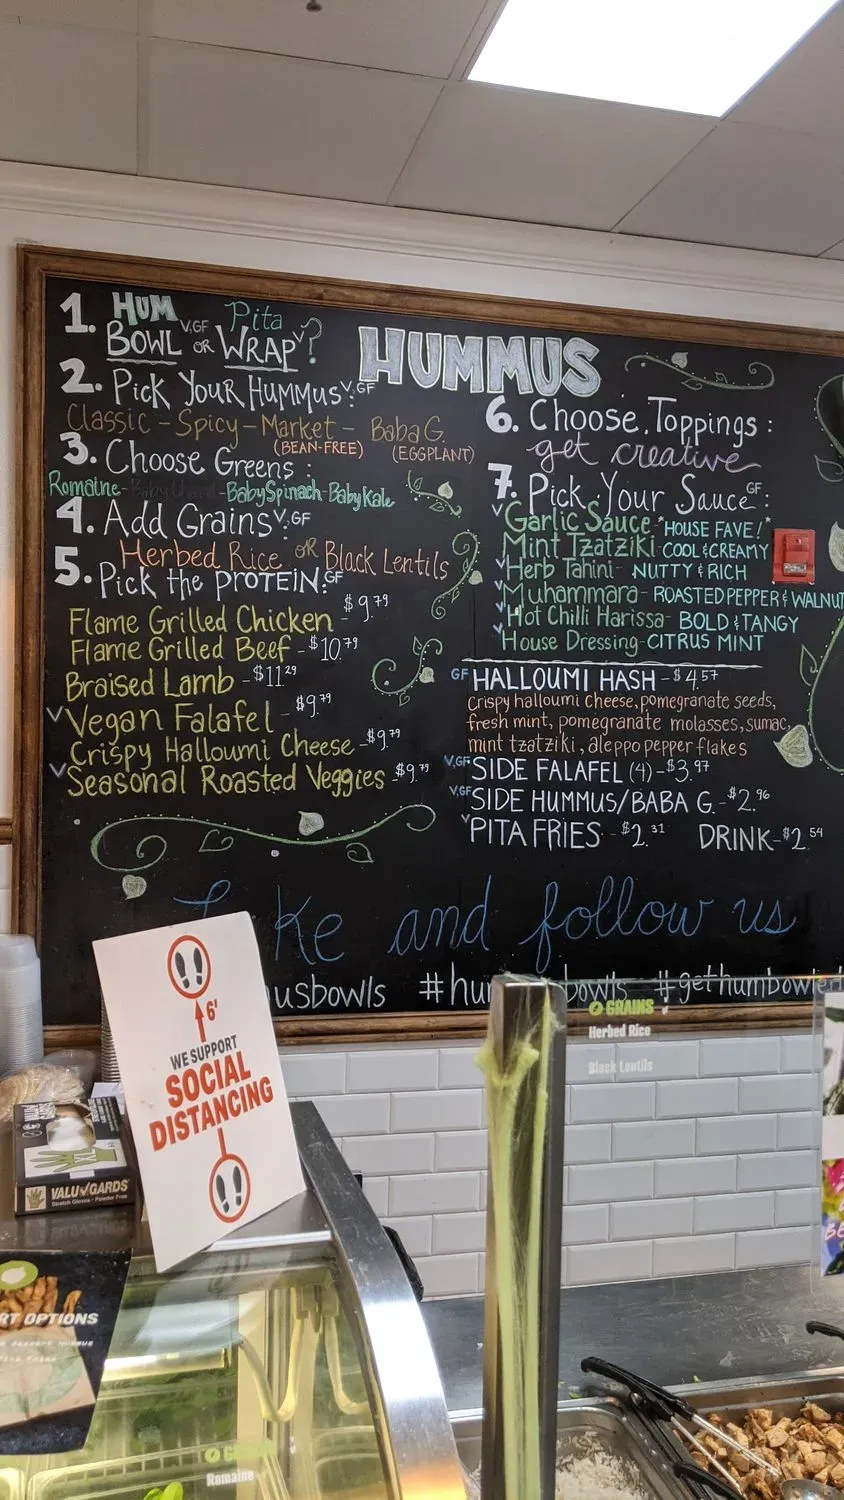 1. HUM Pita
BOWL V,GF OR WRAP V?
HUMMUS
2. Pick Your Hummus V,GF:
Classic - Spicy - Market - Baba G.
(BEAN-FREE) (EGGPLANT)
3. Choose Greens:
Romaine - Baby Chard - Baby Spinach - Baby Kale
4. Add Grains V,GF:
Herbed Rice OR Black Lentils
5. Pick the PROTEIN: GF
Flame Grilled Chicken - $9.79
Flame Grilled Beef - $10.79
Braised Lamb - $11.29
V Vegan Falafel - $9.79
Crispy Halloumi Cheese - $9.79
V Seasonal Roasted Veggies - $9.79
6. Choose Toppings:
get creative
7. Pick Your Sauce GF:
V Garlic Sauce *HOUSE FAVE!*
Mint Tzatziki COOL & CREAMY
V Herb Tahini - NUTTY & RICH
V Muhammara - ROASTED PEPPER & WALNUT
V Hot Chilli Harissa - BOLD & TANGY
V House Dressing - CITRUS MINT
GF HALLOUMI HASH - $4.57
crispy halloumi cheese, pomegranate seeds,
fresh mint, pomegranate molasses, sumac,
mint tzatziki, aleppo pepper flakes
V,GF SIDE FALAFEL (4) - $3.97
V,GF SIDE HUMMUS/BABA G. - $2.96
V PITA FRIES - $2.31 DRINK - $2.54
and follow us
usbowls #hu bowls #gethumbowled
6'
WE SUPPORT
SOCIAL
DISTANCING
GRAINS
Herbed Rice
Black Lentils
XL
VALUGARDS
Stretch Gloves - Powder Free
RT OPTIONS
Romaine